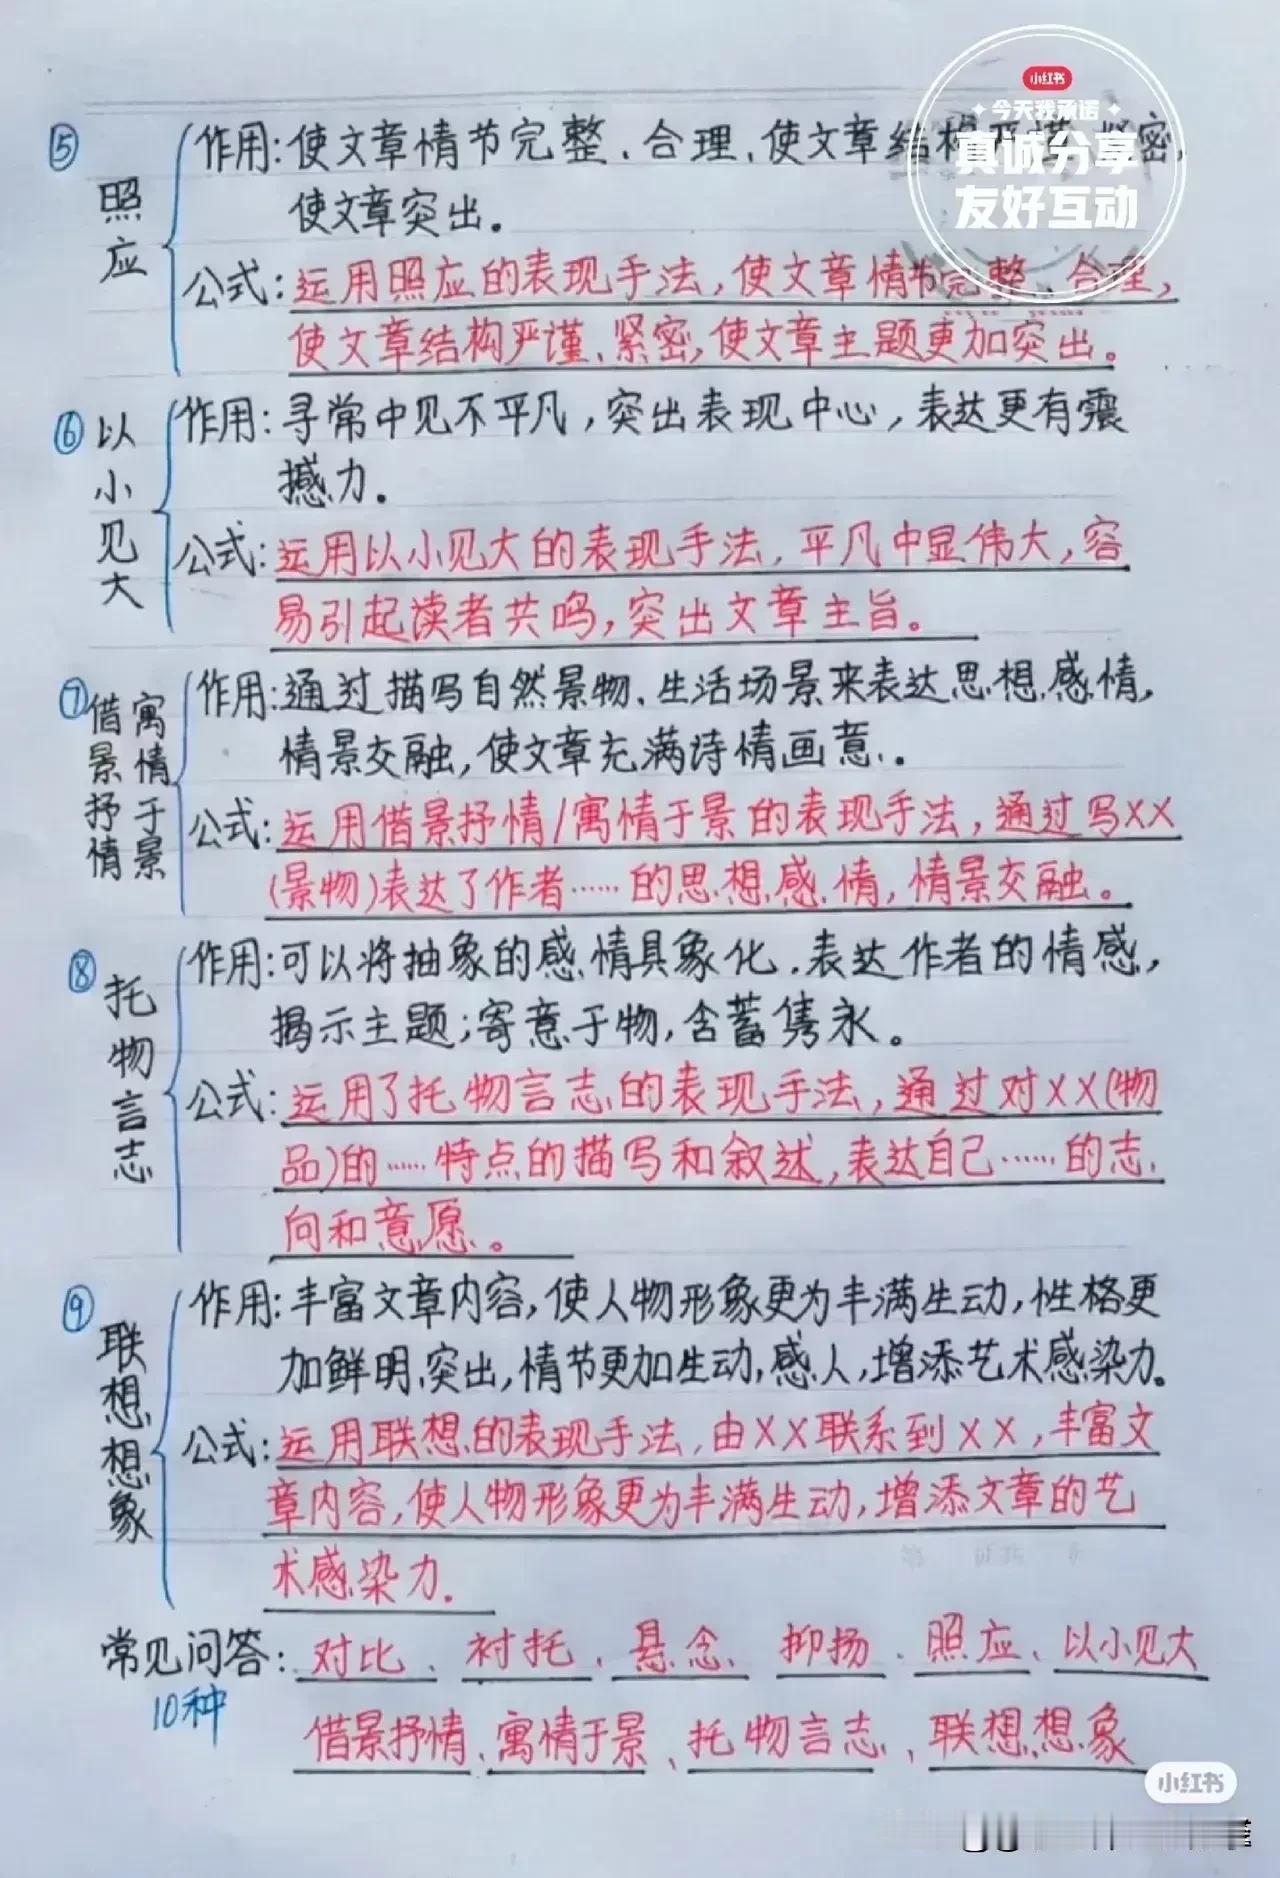 小红书
今天我承诺
真诚分享
友好互动
⑤ 照应
作用:使文章情节完整、合理、使文章结构 紧密,
使文章突出。
公式:运用照应的表现手法,使文章情节完整、合理,
使文章结构严谨、紧密,使文章主题更加突出。
⑥ 以小见大
作用:寻常中见不平凡,突出表现中心,表达更有震
撼力。
公式:运用以小见大的表现手法,平凡中显伟大,容
易引起读者共鸣,突出文章主旨。
⑦ 借景抒情 寓情于景
作用:通过描写自然景物、生活场景来表达思想感情,
情景交融,使文章充满诗情画意。
公式:运用借景抒情/寓情于景的表现手法,通过写XX
(景物)表达了作者……的思想感情,情景交融。
⑧ 托物言志
作用:可以将抽象的感情具象化,表达作者的情感,
揭示主题;寄意于物,含蓄隽永。
公式:运用了托物言志的表现手法,通过对XX(物
品)的……特点的描写和叙述,表达自己……的志
向和意愿。
⑨ 联想想象
作用:丰富文章内容,使人物形象更为丰满生动,性格更
加鲜明突出,情节更加生动,感人,增添艺术感染力。
公式:运用联想的表现手法,由XX联系到XX,丰富文
章内容,使人物形象更为丰满生动,增添文章的艺
术感染力.
常见问答:对比、衬托、悬念、抑扬、照应、以小见大
10种
借景抒情、寓情于景、托物言志、联想想象
小红书